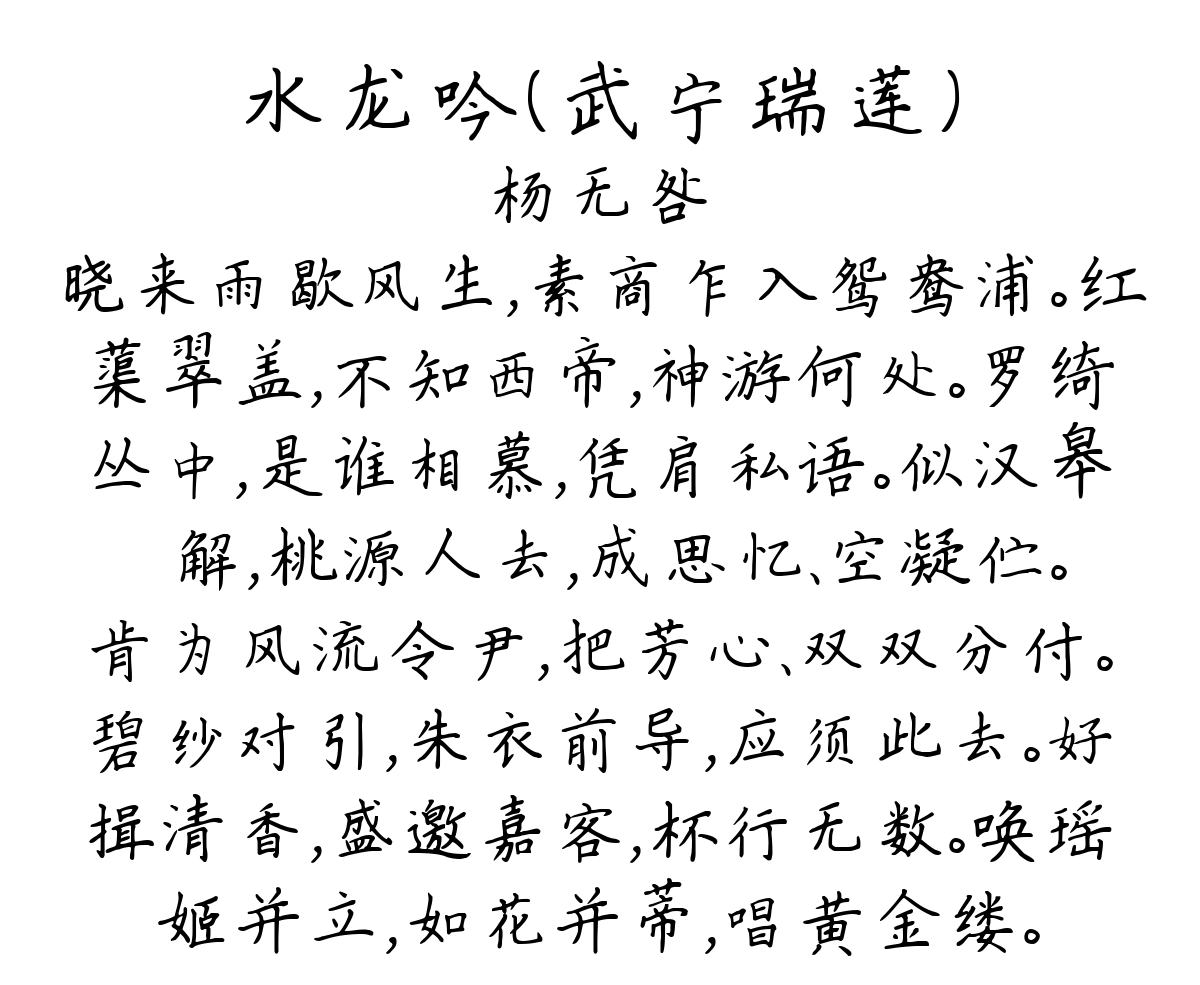 水龙吟(武宁瑞莲)
杨无咎
晓来雨歇风生,素商乍入鸳鸯浦。红
蕖翠盖,不知西帝,神游何处。罗绮
丛中,是谁相慕,凭肩私语。似汉皋
解,桃源人去,成思忆、空凝伫。
肯为风流令尹,把芳心、双双分付。
碧纱对引,朱衣前导,应须此去。好
揖清香,盛邀嘉客,杯行无数。唤瑶
姬并立,如花并蒂,唱黄金缕。